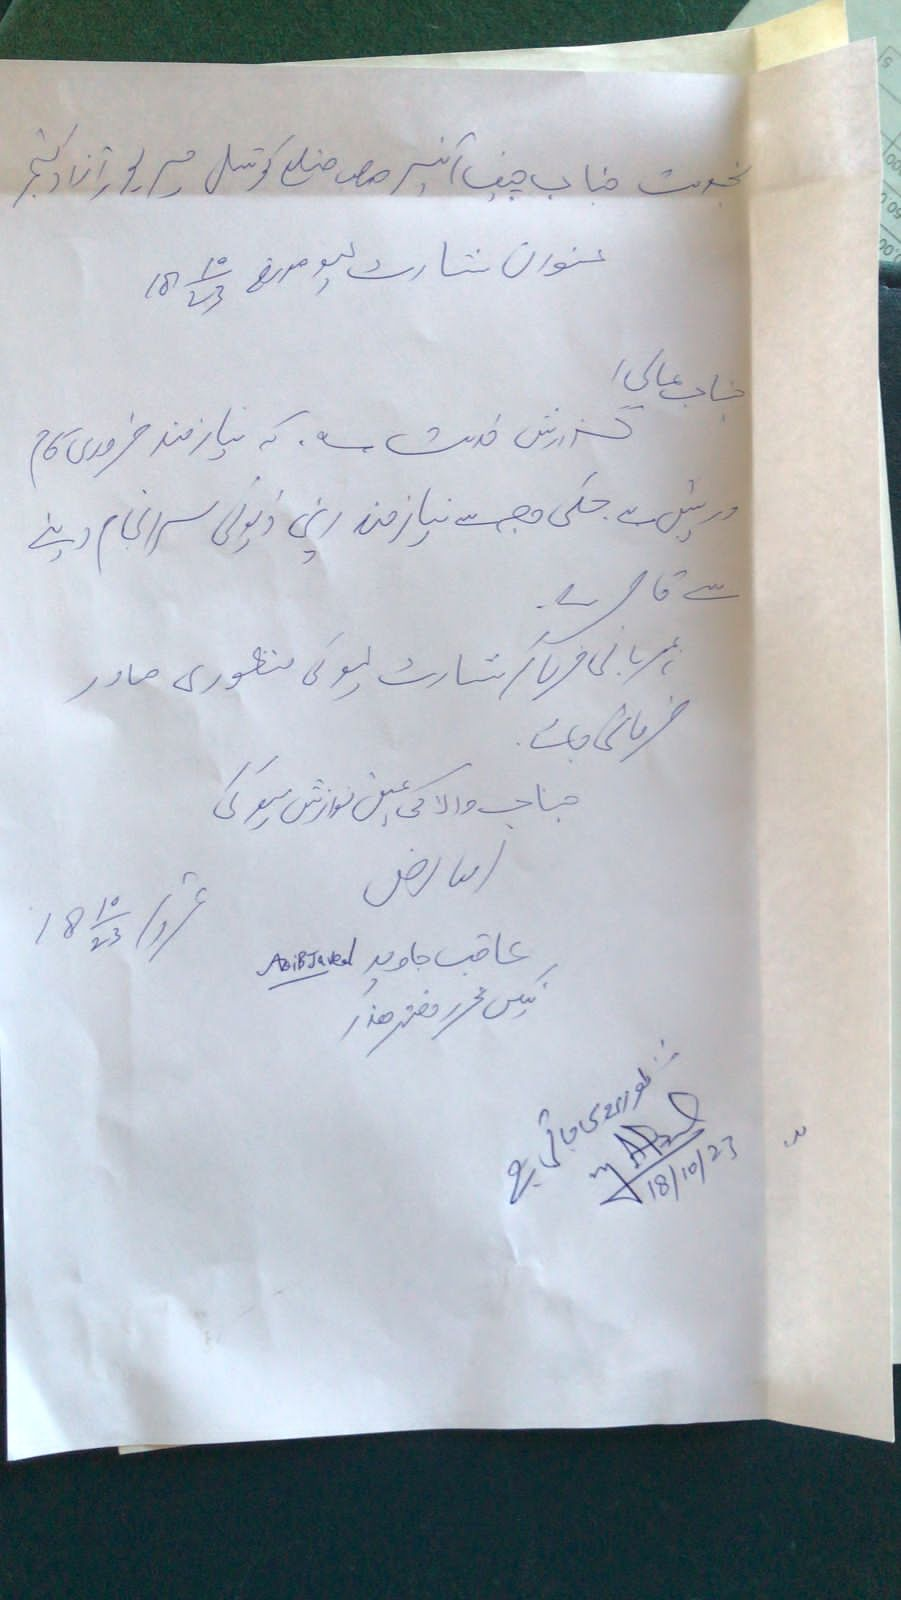 بخدمت جناب چیف آفیسر صاحب ضلع کونسل میرپور آزاد کشمیر
عنوان شارٹ لیو مورخہ 18 10/23
جناب عالی!
گزارش خدمت ہے۔ کہ نیازمند ضروری کام
درپیش ہے۔ جسکی وجہ سے نیازمند اپنی ڈیوٹی سرانجام دینے
سے قاصر ہے۔
مہربانی فرما کر شارٹ لیو کی منظوری صادر
فرمائی جائے۔
جناب والا کی عین نوازش ہو گی
العارض
مورخہ 18 10/23
عاقب جاوید AQIB Javed
ٹیکس محرر دفتر ھذا
منظوری دی جاتی ہے
18/10/23